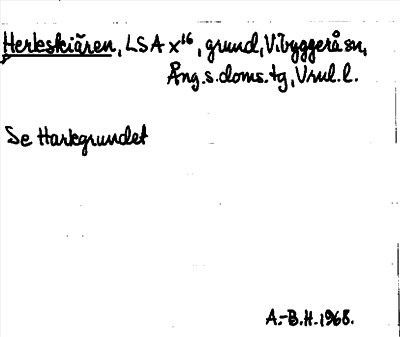 Herkeskiären, LSA x16, grund, Vibyggerå sn,
Ång.s.doms.tg, Vrml.l.
Se Harkgrundet
A.-B.H. 1968.